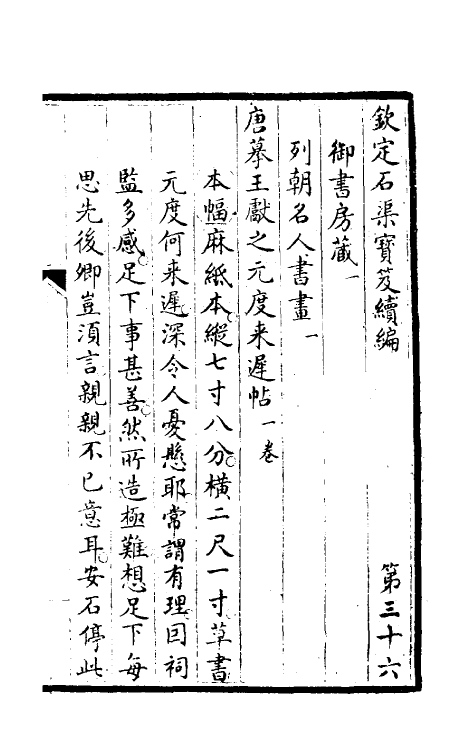 欽定石渠寶笈續編 第三十六
御書房藏一
列朝名人書畫一
唐摹王獻之元度来遲帖一卷
本幅麻紙本縱七寸八分橫二尺一寸草書
元度何来遲深令人憂懸耶常謂有理因祠
監多感足下事甚善然所造極難想足下每
思先後卿豈須言親親不已意耳安石停此